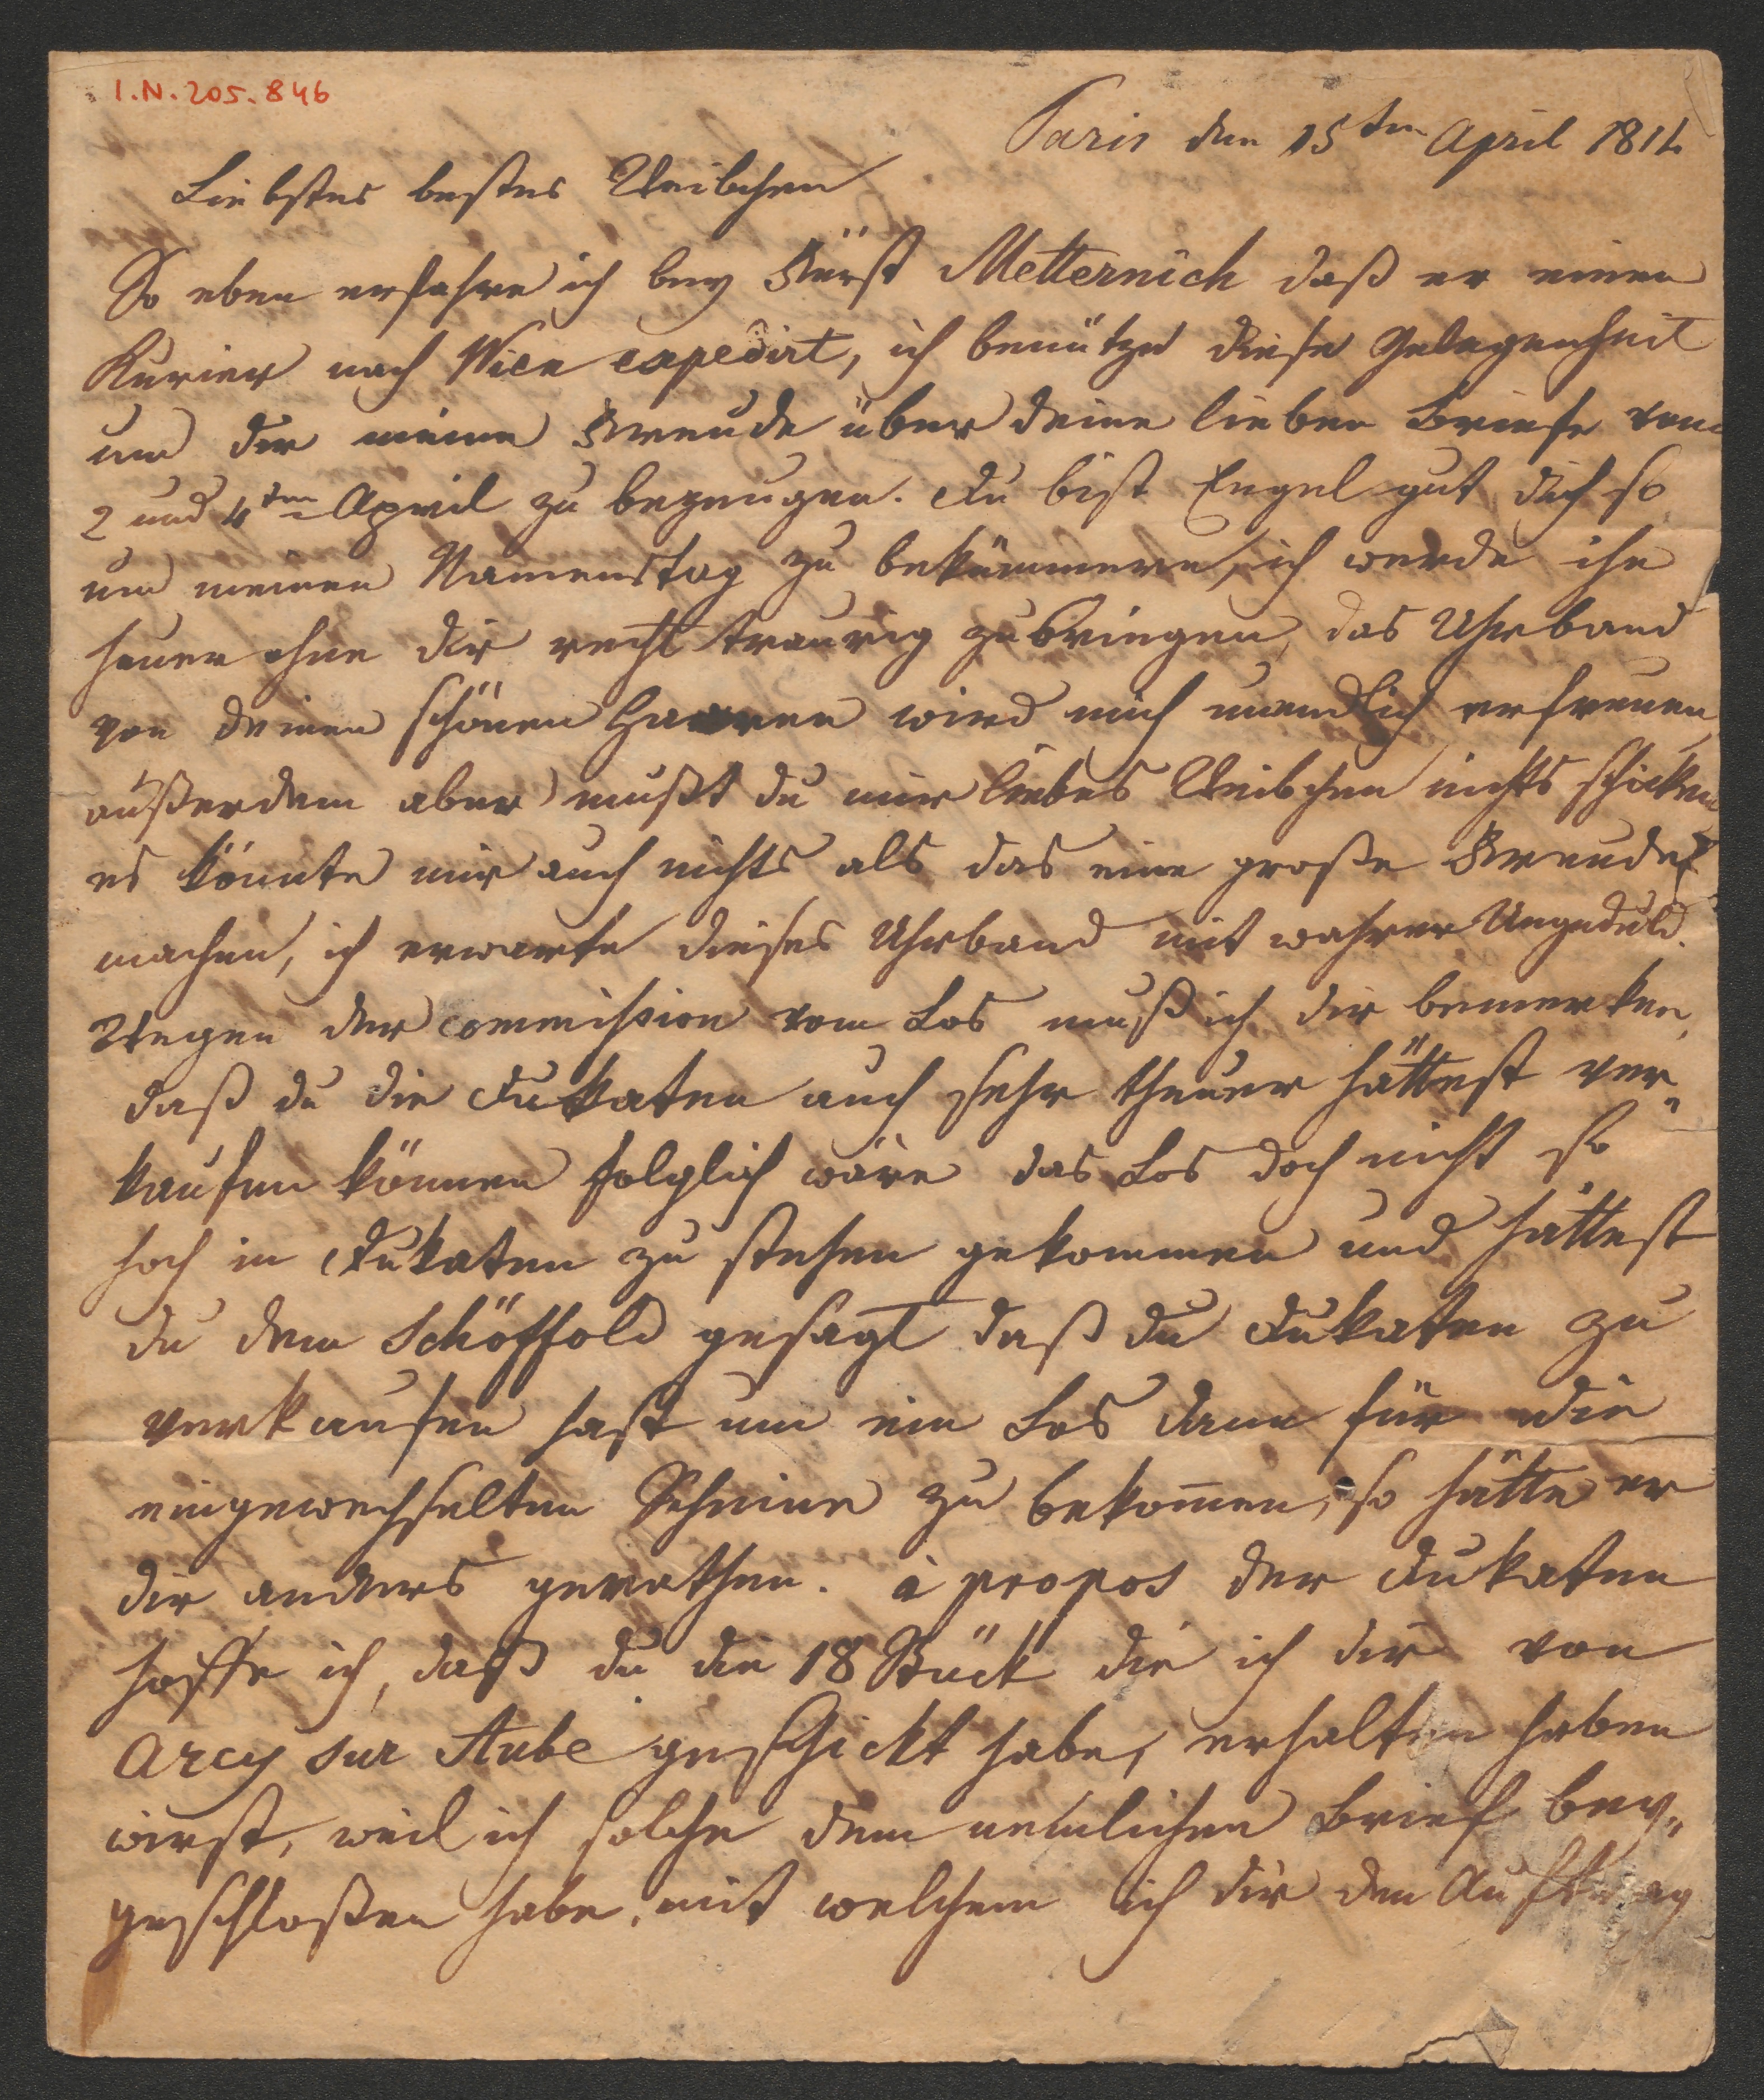 I.N. 205.846
Paris den 15ten April 1814
Liebstes bestes Weibchen
So eben erfahre ich bey Fürst Metternich daß er einen
Kurier nach Wien expedirt, ich benütze diese Gelegenheit
um dir meine Freude über deine lieben Briefe vom
2 und 4ten April zu bezeugen. Du bist Engel gut dich so
um meinen Namenstag zu bekümmern, ich werde ihn
heuer ohne dir recht traurig zubringen, das Uhrband
von deinen schönen Haaren wird mich unendlich erfreuen
außerdem aber mußt du mir liebes Weibchen nichts schicken
es könnte mir auch nichts als das eine große Freude
machen, ich erwarte dieses Uhrband mit wahrer Ungeduld.
Wegen der commission vom Los muß ich dir bemerken,
daß du die Dukaten auch sehr theuer hättest ver-
kaufen können folglich wäre das Los doch nicht so
hoch in Dukaten zu stehen gekommen und hättest
du dem Schöffold gesagt daß du Dukaten zu
verkaufen hast um ein Los dann für die
eingewechselten Scheine zu bekommen, so hätte er
dir anders gerathen. à propos der Dukaten
hoffe ich, daß du die 18 Stück die ich dir von
Arcy sur Aube geschickt habe, erhalten haben
wirst, weil ich solche dem nemlichen Brief bey„
geschloßen habe, mit welchem ich dir den Auftrag